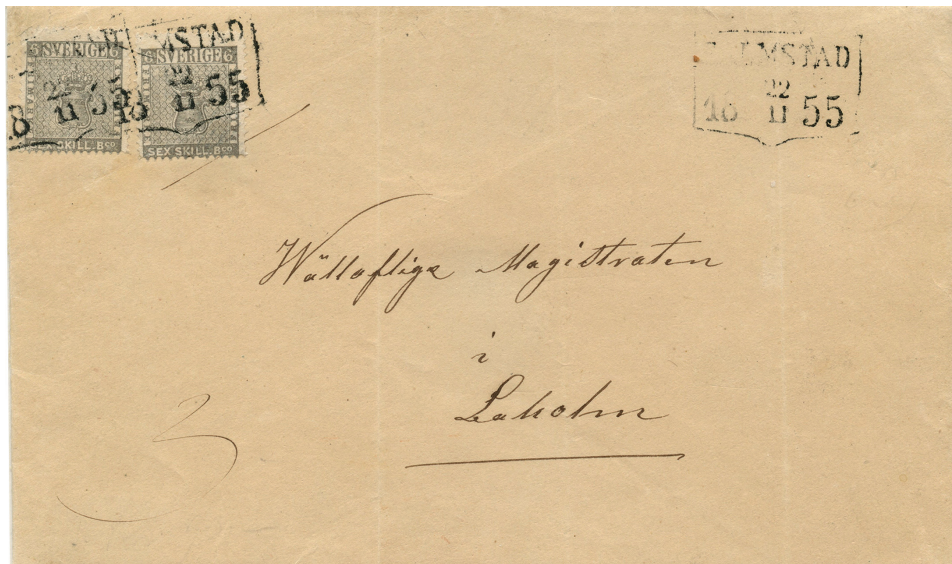 SVERIGE
SEX SKILL. Bco
SVERIGE
SEX SKILL. Bco
MSTAD
22
18 11 55
22
18 11 55
MSTAD
22
18 11 55
Wällofliga Magistraten
i
Laholm
3